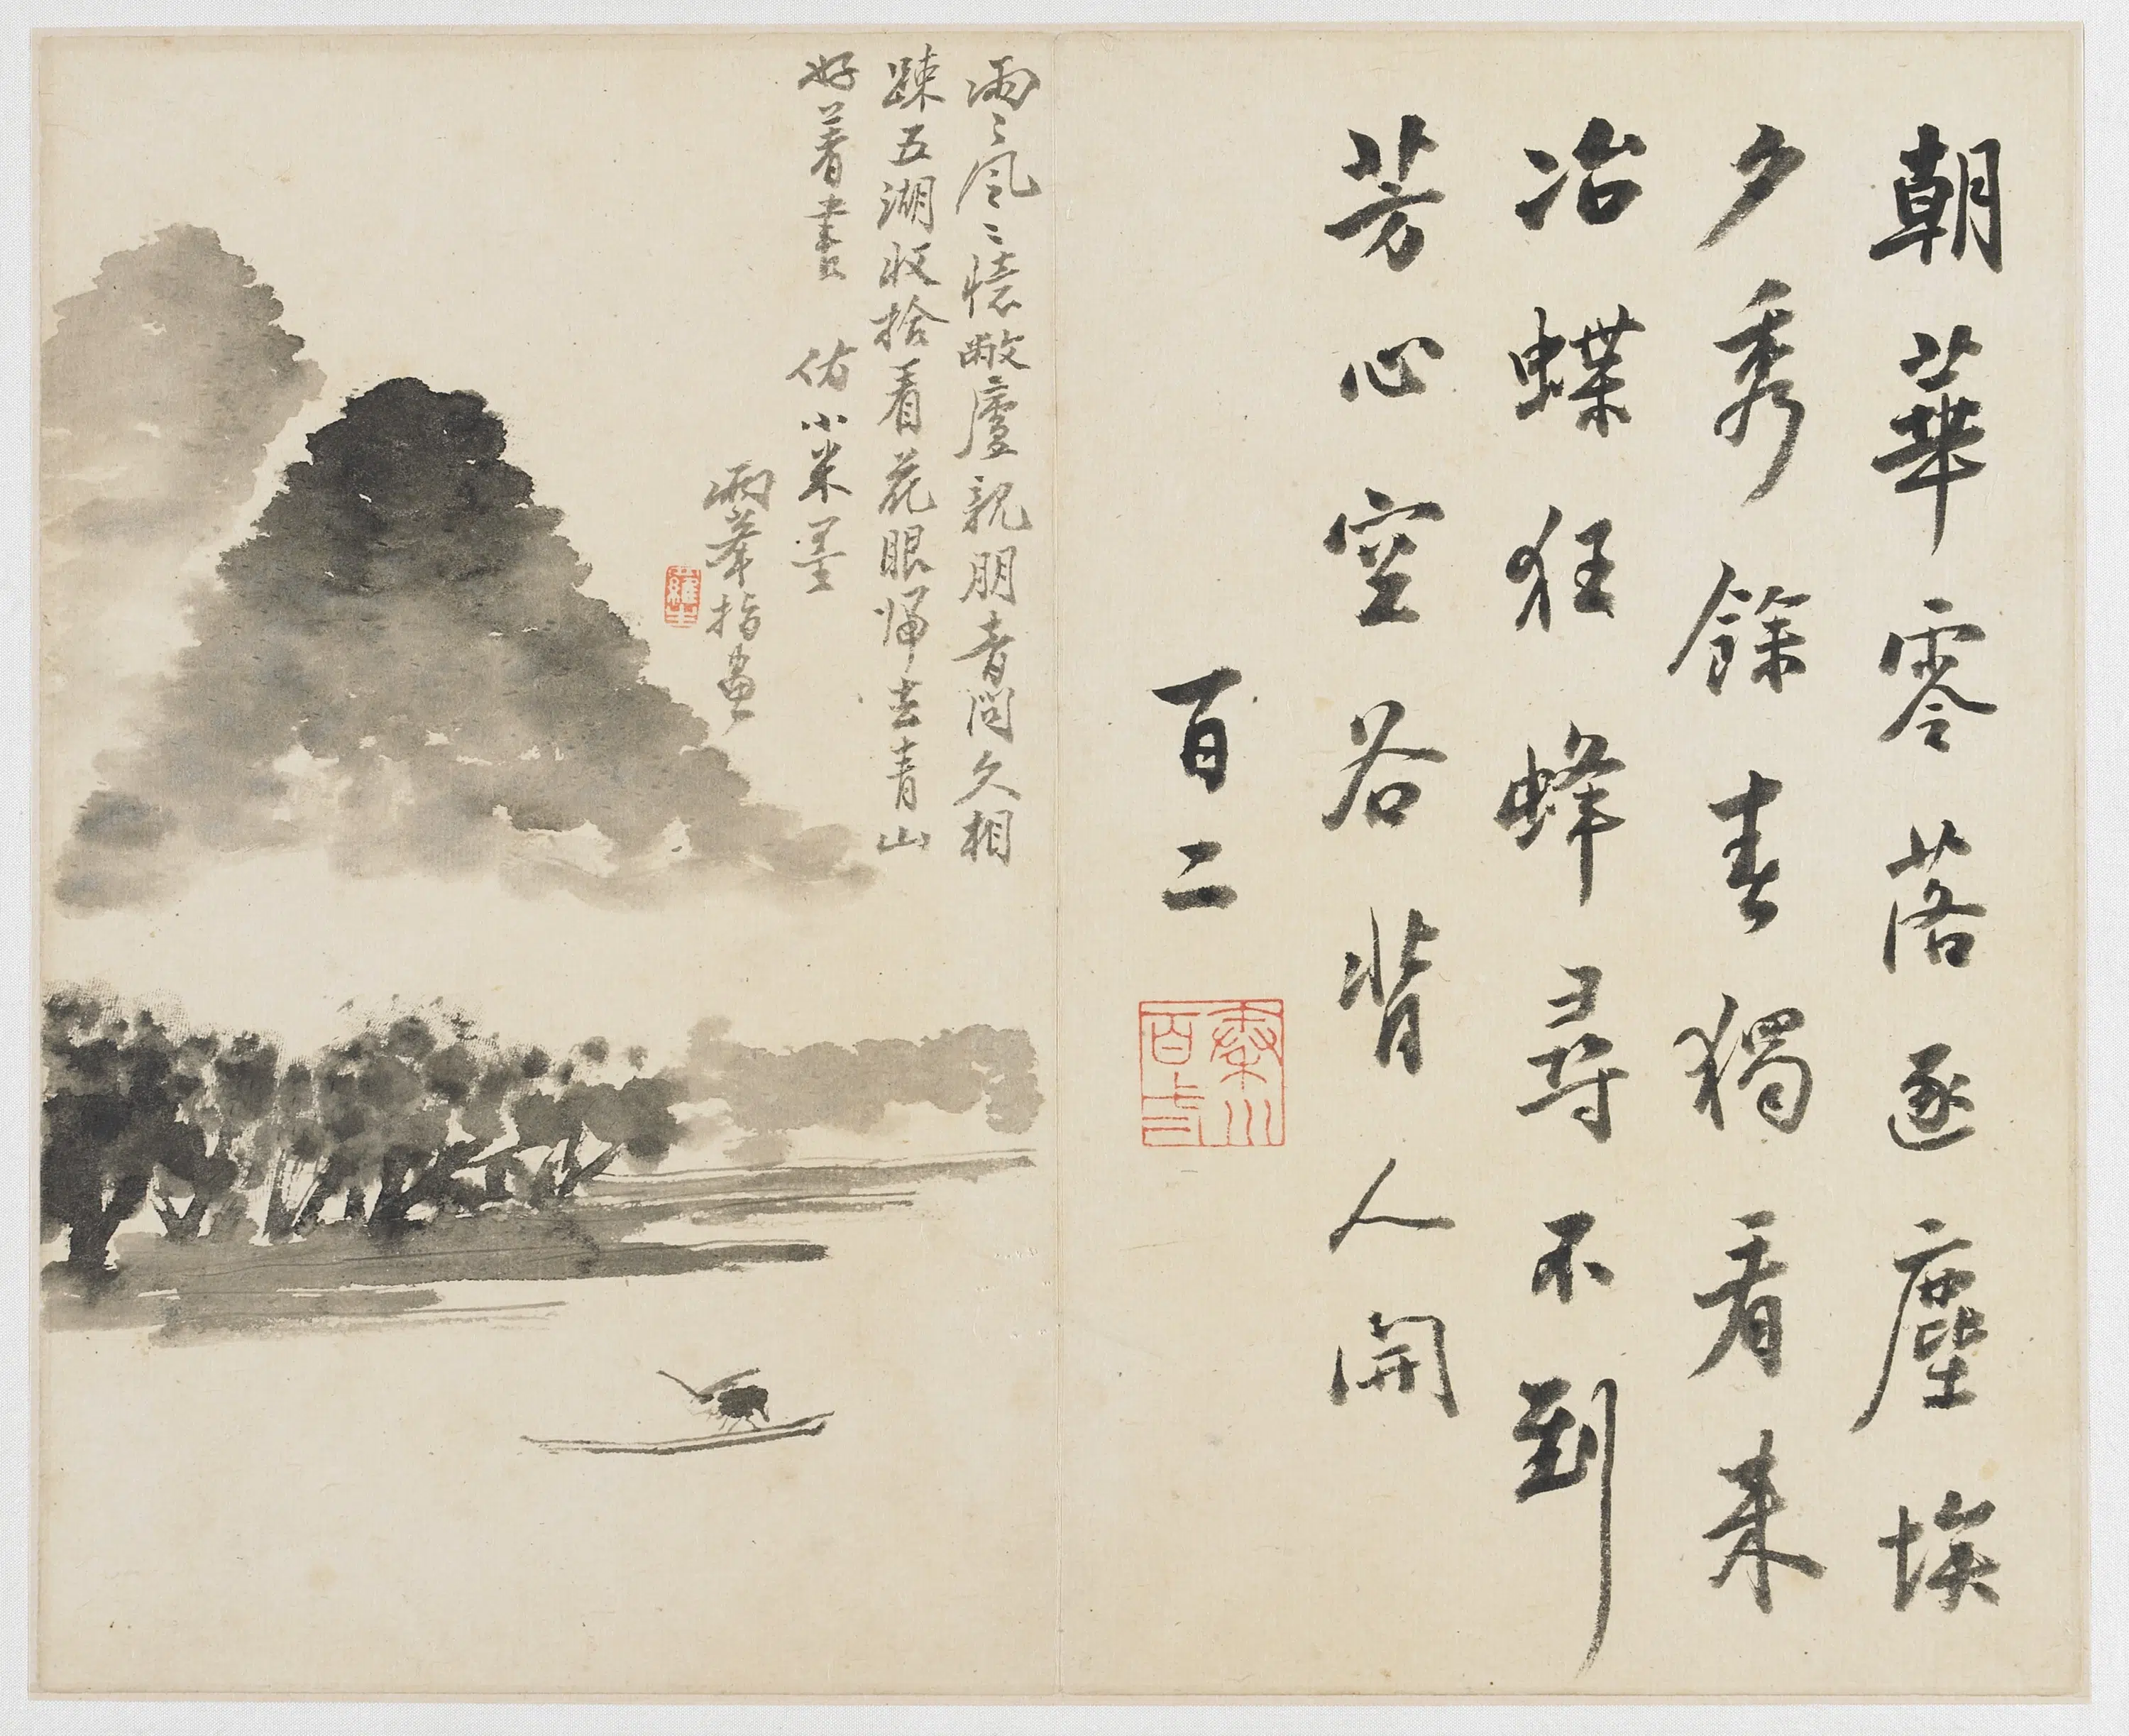 朝華零落逐塵埃
夕秀餘春獨看来
冶蝶狂蜂尋不到
芳心空谷背人開
百二
雨〻風〻憶敝廬親朋音問久相
踈五湖收拾看花眼歸去青山
好著書 仿小米墨
兩峯指畫